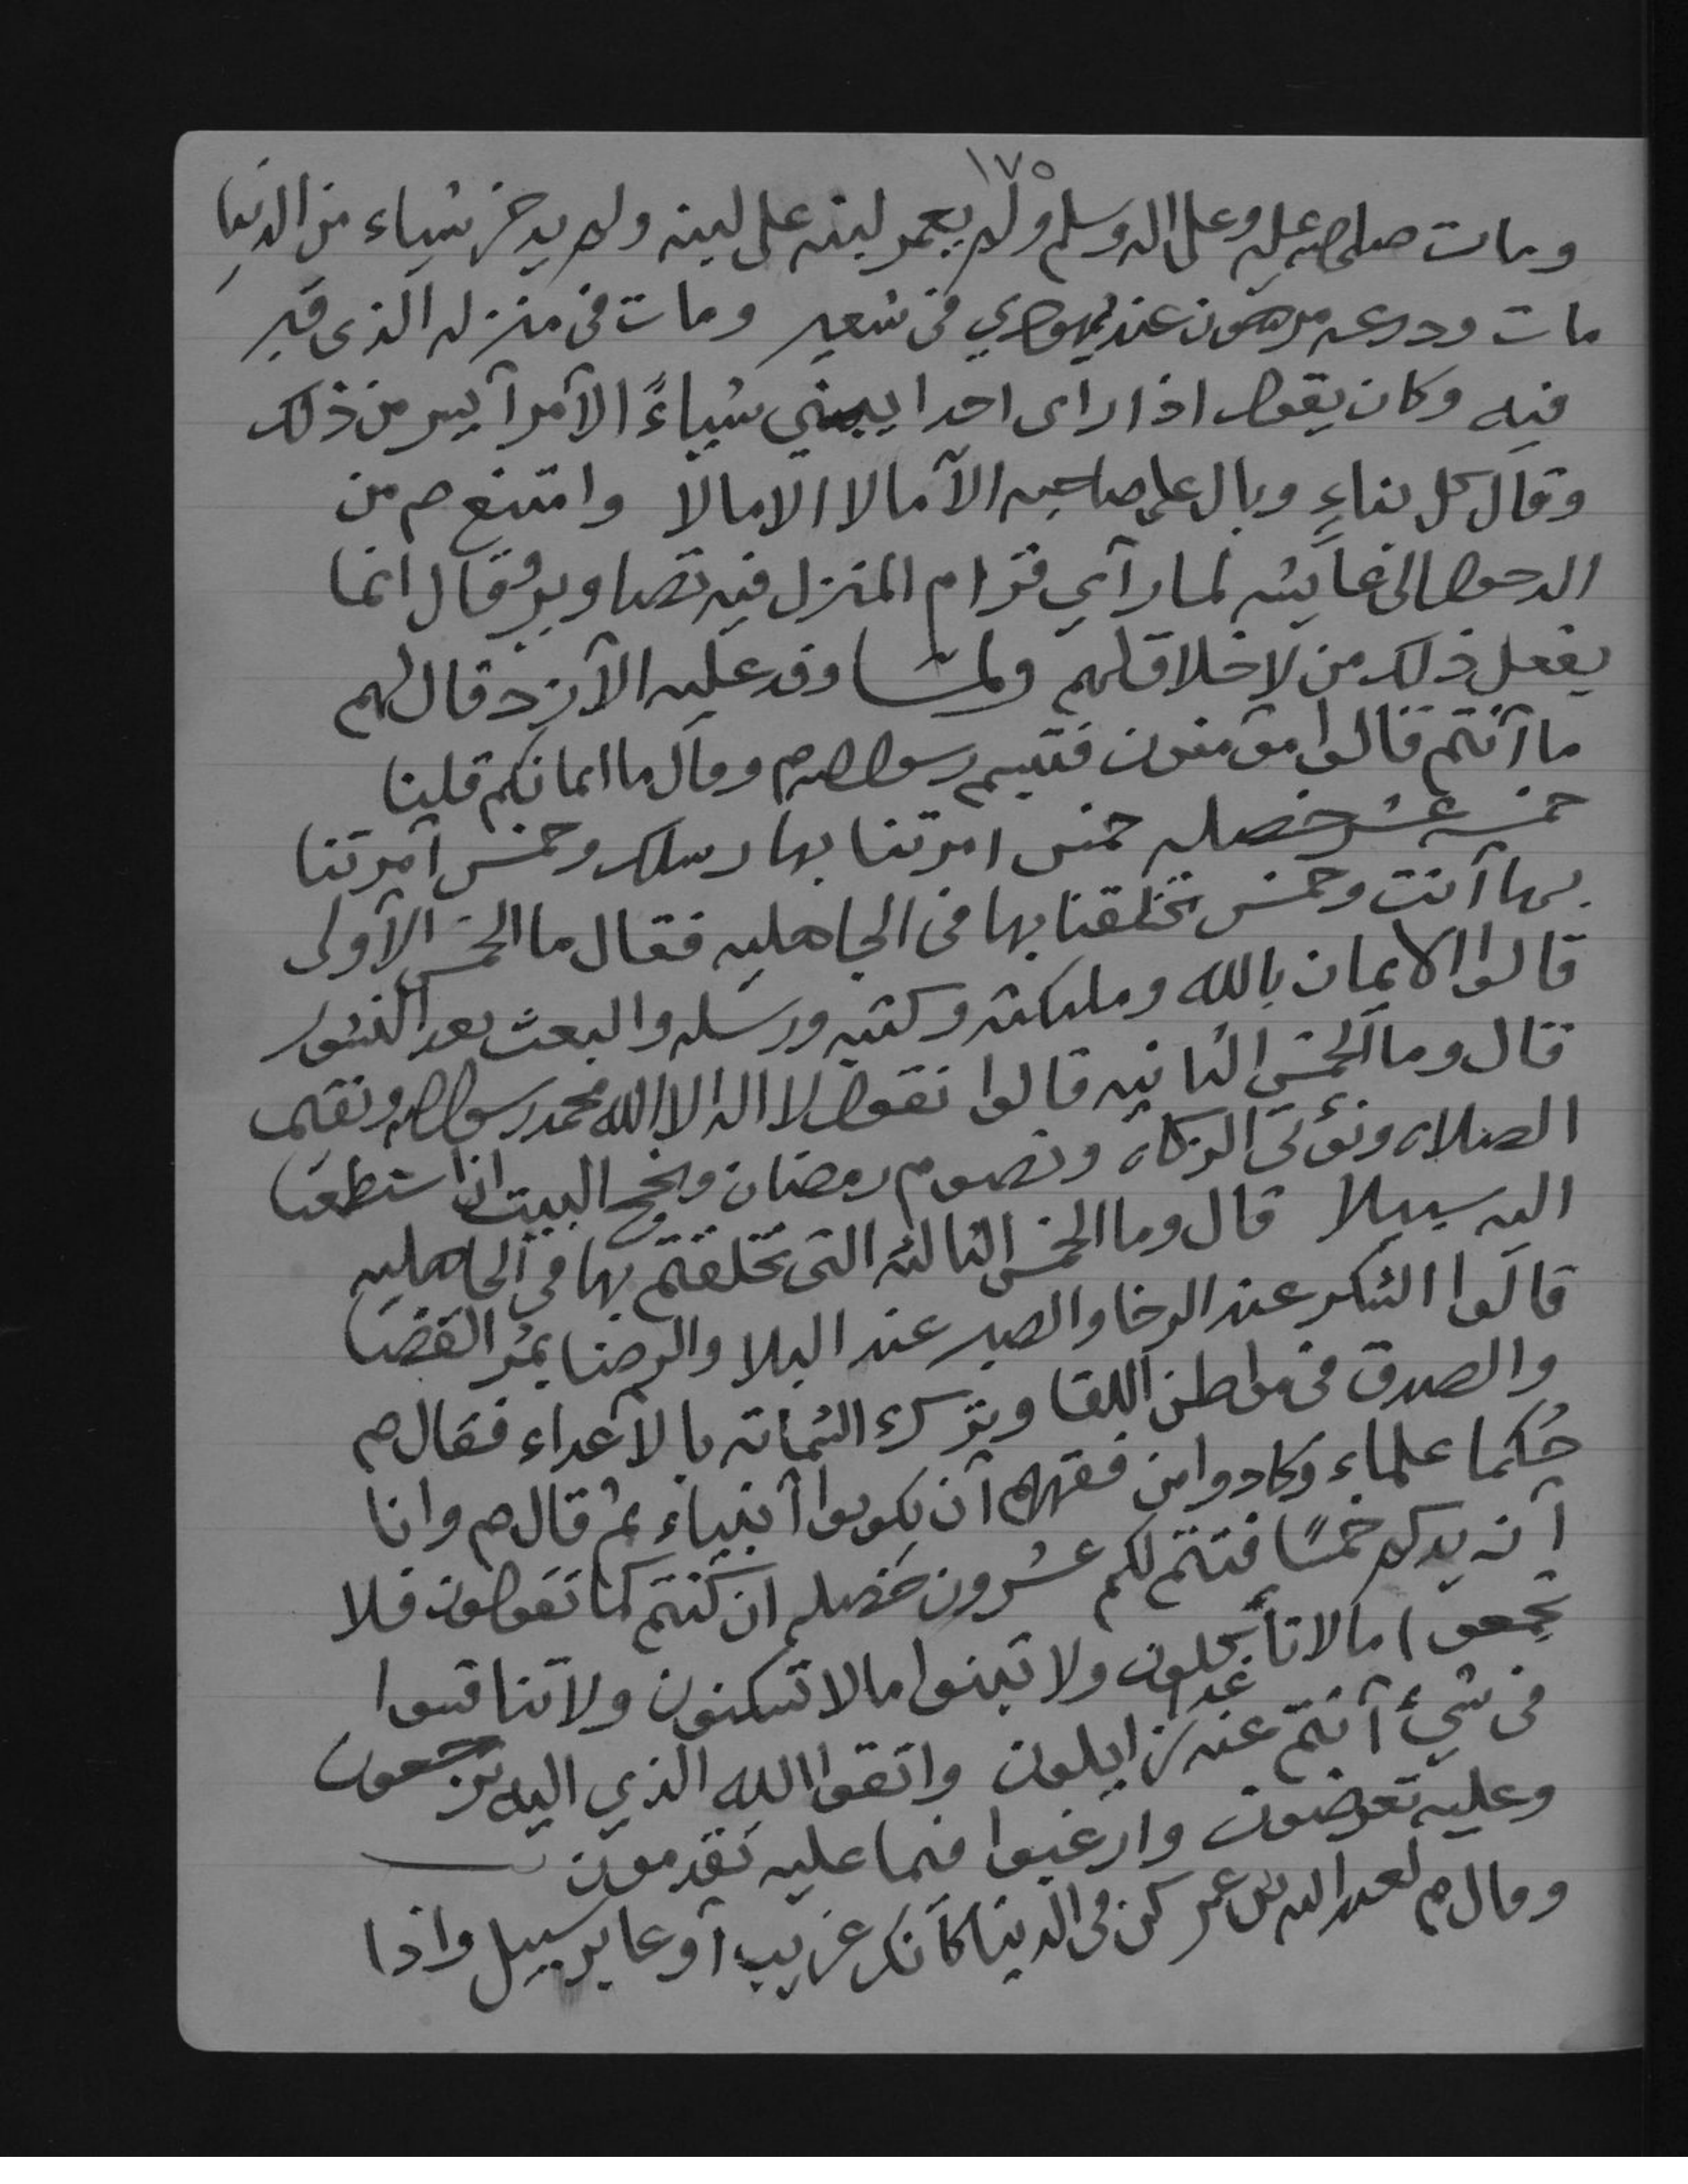 ١٧٥
ومات صلى الله عليه وعلى اله وسلم ولم يعمر لبنه على لبنه ولم يدخر شياء من الدنيا
مات ودرعه مرهون عند يهودي في شعير ومات في منزله الذي قبر
فيه وكان يقول اذا راى احدا يبني شياءً الآمر آيسر من ذلك
وقال كل بناءٍ وبال على صاحبه الآ مالا الا مالا وامتنع صم من
الدخول الى عايشه لما رآي قرام المنزل فيه تصاوير وقال انما
يفعل ذلك من لا خلاق لهم ولمـــا وفد عليه الآزد قال لهم
ما آنتم قالوا مؤمنون فتبسم رسول الله صم وقال ما ايمانكم قلنا
خمسه عشر خصله خمس امرتنا بها رسلك وخمس آمرتنا
بها آنت وخمس تخلقنا بها في الجاهليه فقال ما الخمس الآولى
قالوا الايمان بالله وملىكته وكتبه ورسله والبعث بعد النشور
قال وما الخمس الثانيه قالوا نقول لا اله الا الله محمد رسول الله ونقيم
الصلاه ونؤتي الزكاه ونصوم رمضان ونحج البيت ان استطعنا
اليه سبيلا قال وما الخمس الثالثه التي تخلقتم بها في الجاهليه
قالوا الشكر عند الرخا والصبر عند البلا والرضا بمُر القضا
والصدق في مواطن اللقا وترك الشماته بالآعداء فقال صم
حُكما علماء وكادوا من فقههم آن يكونوا آنبياء ثم قال صم وانا
آزيدكم خمسًا فتتم لكم عشرون خصله ان كنتم كما تقولون فلا
تجمعوا مالا تأكلون ولا تبنوا مالا تسكنون ولا تنافسوا
في شيءٍ آنتم عنه غداً زايلون واتقوا الله الذي اليه ترجعون
وعليه تعرضون وارغبوا فيما عليه تقدمون
وقال صم لعبد الله بن عمر كن في الدنيا كآنك غريب آو عابر سبيل واذا